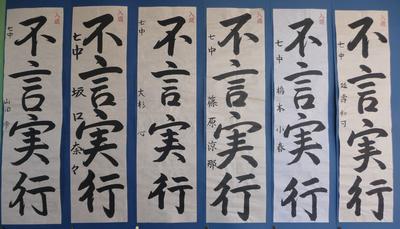 入選
不言実行
七中
入選
不言実行
七中 橋本小春
入選
不言実行
七中 篠原涼那
入選
不言実行
七中 大杉
入選
不言実行
七中 坂口奈々
入選
不言実行
七中 山田